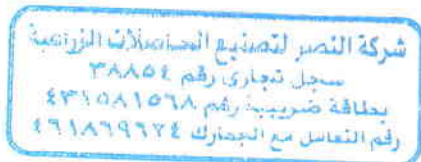 شركة النصر لتصنيع المحاصلات الزراعية
سجل تجارى رقم ٣٨٨٥٤
بطاقة ضريبية رقم ٤٣١٥٨١٥٦٨
رقم التعامل مع الجمارك ٤٦١٨٦٩٦٢٤